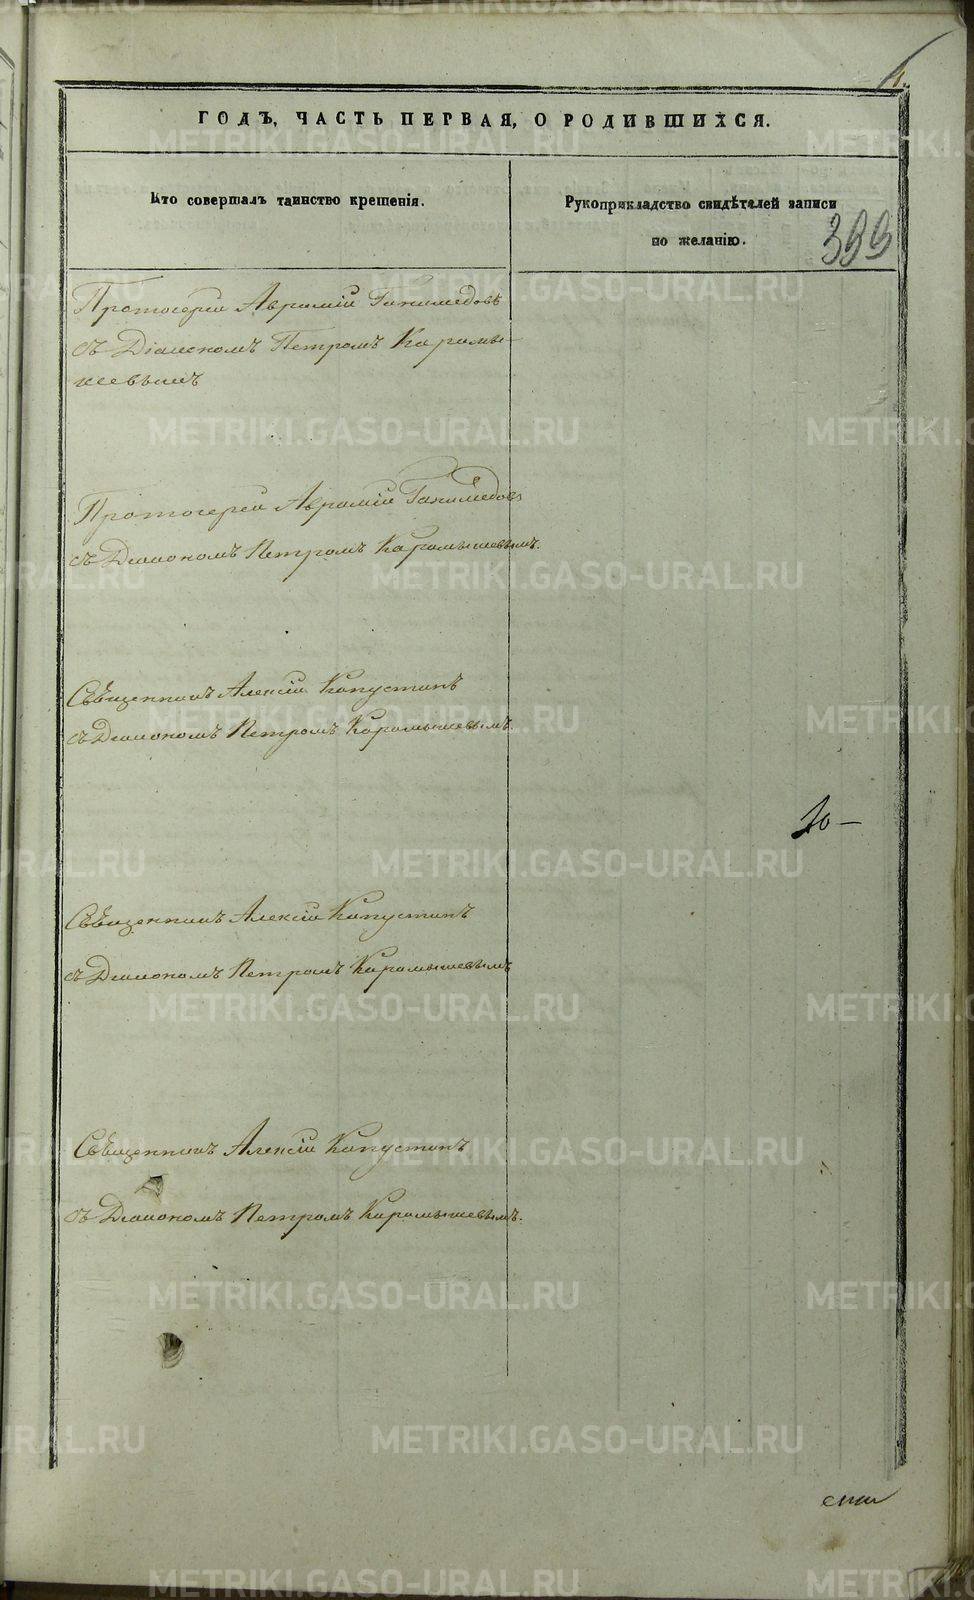 ГОДЪ, ЧАСТЬ ПЕРВАЯ, О РОДИВШИХСЯ.
Кто совершалъ таинство крещенія.
Рукоприкладство свидѣтелей записи
по желанію.
399
Протоіерей Аврамій Ганимедовъ
съ Діакономъ Петромъ Карамы-
шевымъ
Протоіерей Аврамій Ганимедовъ
съ Діакономъ Петромъ Карамышевымъ.
Священникъ Алексій Капустинъ
съ Діакономъ Петромъ Карамышевымъ.
10—
Священникъ Алексій Капустинъ
съ Діакономъ Петромъ Карамышевымъ
Священникъ Алексій Капустинъ
съ Діакономъ Петромъ Карамышевымъ.
METRIKI.GASO-URAL.RU